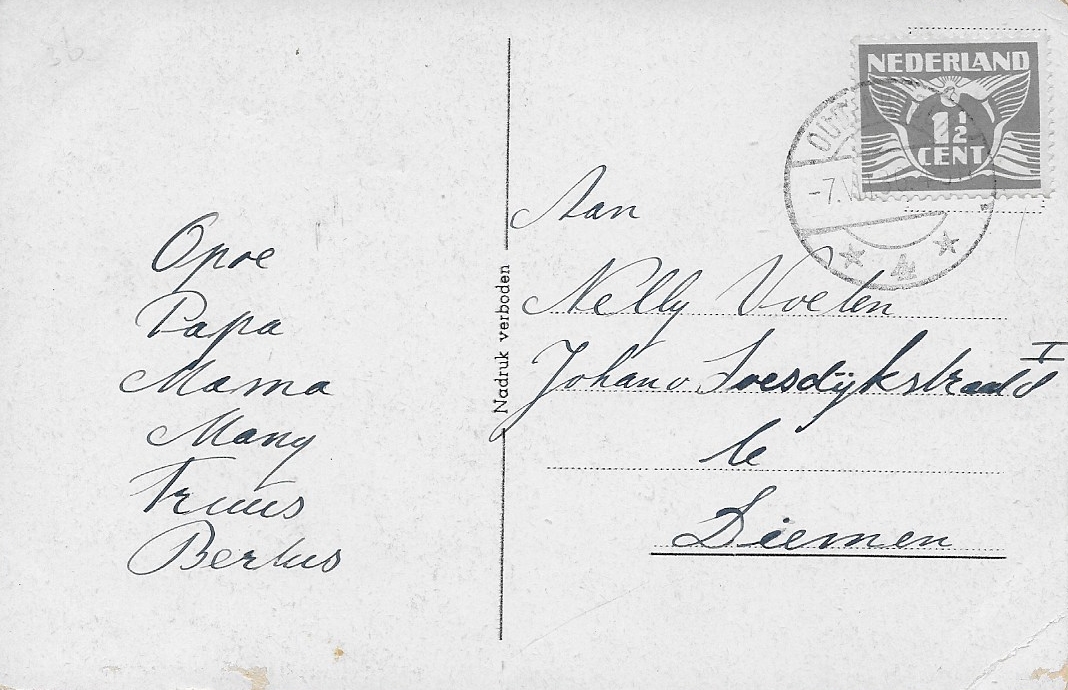 Opoe
Papa
Mama
Many
Truus
Bertus
Nadruk verboden
NEDERLAND
1½
CENT
-7.V
4
Aan
Nelly Voeten
Johan v. Soesdijkstraat
I
te
Diemen